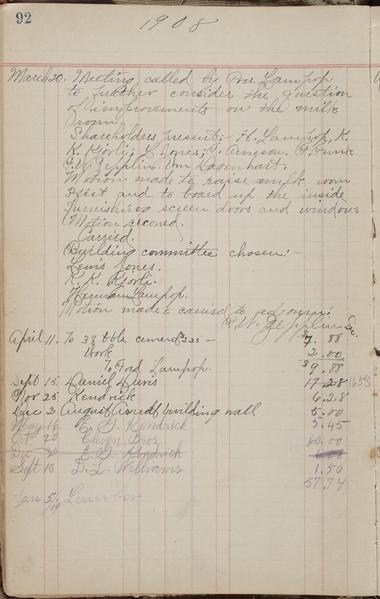 92
1908
March 20. Meeting called by Pres. Lampop
to further consider the question
of improvements on the milk
room.
Shareholders present:- H. Lampop, K.
K. Kjorli, L. Jones, G. Arneson, F. Funk
F. W. Zepplin, Wm Dagenhart.
Motion made to raise milk room
2 feet and to board up the inside
furnishing screen doors and windows
Motion seconed.
Carried.
Building committee chosen:-
Lewis Jones.
K. K. Kjorli.
Herman Lampop.
Motion made & carried to adjourn.
F. W. Zepplin Sec.
April 11. To 3¾ bbls. cement — $7.88
Work 2.00
To Fred Lampop. $9.88
Sept 15. Daniel Davis 17.28 1658
Nov 25 Kendrick 6.28
Dec 2 August building wall 5.00
May 16 E. G. Kendrick 5.45
Oct 20 Bros 60.00
Dec 30 E. G. Kendrick
Sept 10 D. L. Williams 1.50
57.74
Jan 5/09 Lumber